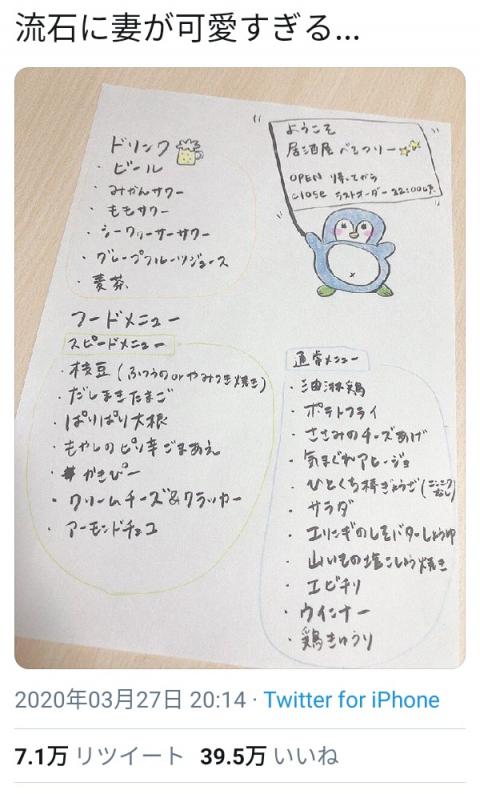 流石に妻が可愛すぎる...
ようこそ
居酒屋 ぺるフリー
OPEN 帰ってから
CLOSE ラストオーダー 22:00くらい
ドリンク
・ビール
・みかんサワー
・ももサワー
・シークヮーサーサワー
・グレープフルーツジュース
・麦茶
フードメニュー
スピードメニュー
・枝豆(ふつうのorやみつき焼き)
・だしまきたまご
・ぱりぱり大根
・もやしのピリ辛ごまあえ
・かきぴー
・クリームチーズ&クラッカー
・アーモンドチョコ
通常メニュー
・油淋鶏
・ポテトフライ
・ささみのチーズあげ
・気まぐれアヒージョ
・ひとくち棒ぎょうざ(にんにくなし)
・サラダ
・エリンギのしそバターしょうゆ
・山いもの塩こしょう焼き
・エビチリ
・ウインナー
・鶏きゅうり
2020年03月27日 20:14 · Twitter for iPhone
7.1万 リツイート 39.5万 いいね